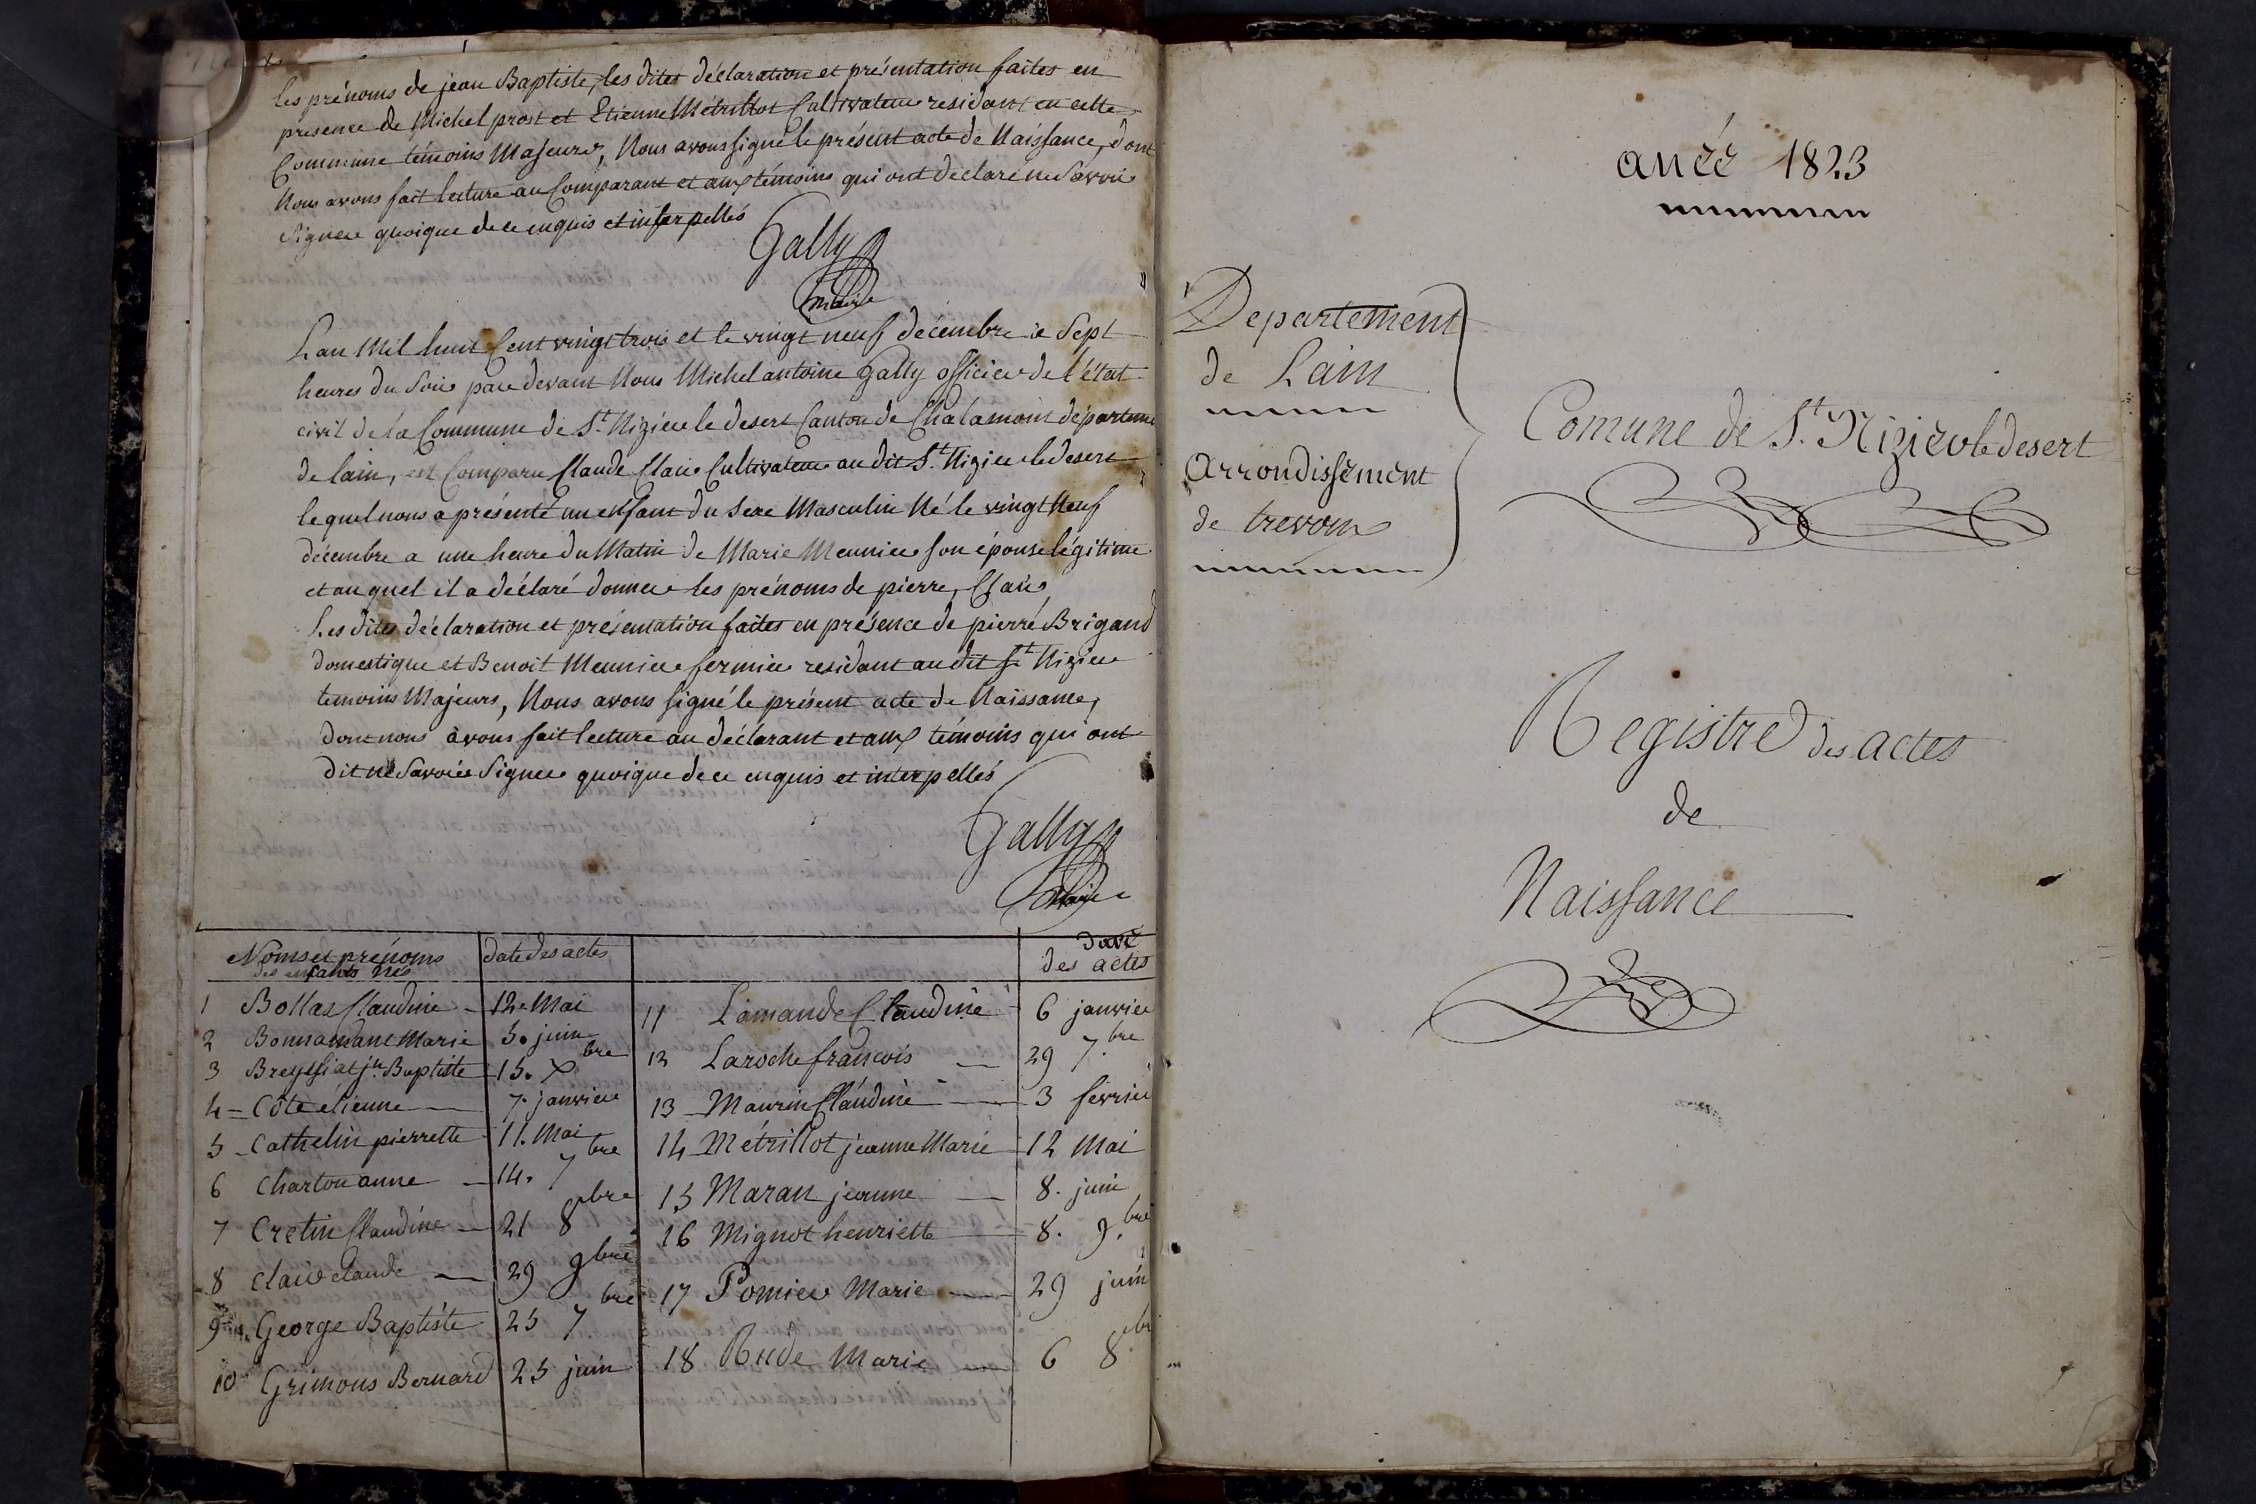 les prénoms de jean Baptiste, les dites déclaration et présentation faites en
presence de Michel prost et Etienne Métrillot Cultivateur residant en cette
Commune témoins Majeurs, Nous avons signé le présent acte de Naissance, dont
Nous avons fait lecture au Comparant et aux témoins qui ont déclaré ne Savoir
Signer quoique de ce enquis et interpellés
Gally
maire
Lan Mil huit Cent vingt trois et le vingt neuf décembre à Sept
heures du Soir par devant Nous Michel antoine Gally officier de l'état
civil de la Commune de St. Nizier le desert Canton de Chalamont départeme
de lain, est Comparu Claude Clair Cultivateur au dit St. Nizier le desert
le quel nous a présenté un enfant du Sexe Masculin Né le vingt Neuf
décembre a une heure du Matin de Marie Meunier son épouse légitime
et au quel il a déclaré donner les prénoms de pierre, Clair
Les dites déclaration et présentation faites en présence de pierre Brigand
domestique et Benoit Meunier fermier residant au dit St Nizier
temoins Majeurs, Nous avons signé le présent acte de Naissance,
dont nous avons fait lecture au déclarant et aux témoins qui ont
dit ne Savoir Signer quoique de ce enquis et interpellés
Gally
Maire
Noms et prénoms
des enfants nés
date des actes
date
des actes
1 Bollaz Claudine 12 Mai
2 Bonnamant Marie 5. juin
3 Breyssiat jn. Baptiste 15. Xbre
4 Côte etienne 7. janvier
5 Cathelin pierrette 11. Mai
6 Charton anne 14. 7bre
7 Cretin Claudine 21 8bre
8 Clair claude 29 9bre
9 George Baptiste 25 7bre
10 Grimous Bernard 25 juin
11 Lamande Claudine 6 janvier
12 Laroche francois 29 7.bre
13 Maurin Claudine 3 fevrier
14 Métrillot jeanne Marie 12 Mai
15 Maran jeanne 8. juin
16 Mignot henriette 8. 9.bre
17 Pomier Marie 29 juin
18 Rude Marie 6 8br
anéé 1823
Departement
de Lain
Arrondissement
de trevoux
Comune de St. Nizier le desert
Registre des actes
de
Naissance